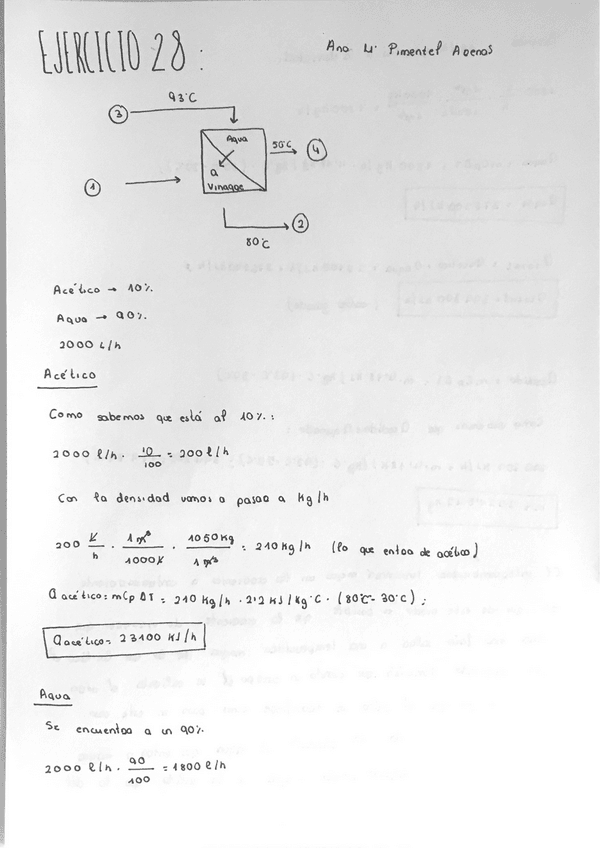 EJERCICIO 28:
Ana Mª Pimentel Arenas
93ºC
3
Agua
a
Vinagre
50ºC
4
1
2
80ºC
Acético → 10%.
Agua → 90%.
2000 L/h
Acético
Como sabemos que está al 10%:
2000 l/h · 10/100 = 200 l/h
Con la densidad vamos a pasar a Kg/h
200 l/h · 1 m³/1000 l · 1050 Kg/1 m³ = 210 Kg/h (lo que entra de acético)
Q acético: mCp ΔT = 210 Kg/h · 2'2 KJ/Kg°C · (80°C - 30°C);
Q acético = 23100 KJ/h
Agua
Se encuentra a un 90%.
2000 l/h · 90/100 = 1800 l/h